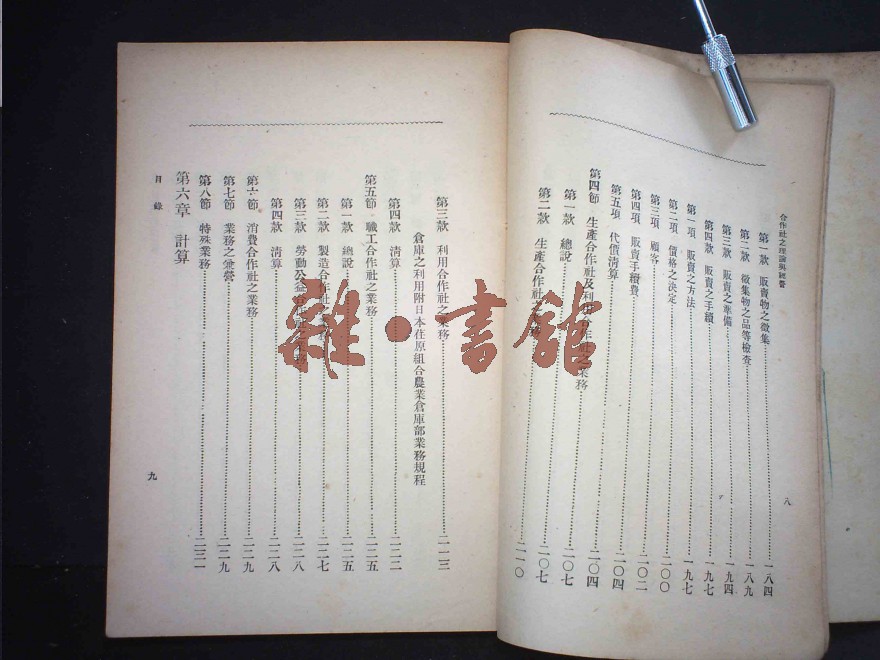 合作社之理論與經營
第一款 販賣物之徵集 一八四
第二款 徵集物之品等檢查 一八九
第三款 販賣之準備 一九四
第四款 販賣之手續 一九七
第一項 販賣之方法 一九七
第二項 價格之決定 二〇〇
第三項 顧客 二〇二
第四項 販賣手續費
第五項 代價清算 二〇四
第四節 生產合作社及利用合作社之業務 二〇四
第一款 總說 二〇七
第二款 生產合作社之 二一〇
八
第三款 利用合作社之業務 二一三
倉庫之利用附日本荏原組合農業倉庫部業務規程
第四款 清算 二二二
第五節 職工合作社之業務 二二五
第一款 總說 二二五
第二款 製造合作社 二二七
第三款 勞動公益合作社之業務 二二八
第四款 清算 二二八
第六節 消費合作社之業務 二二九
第七節 業務之兼營 二二九
第八節 特殊業務 二三一
第六章 計算
目錄
九
雜·書館